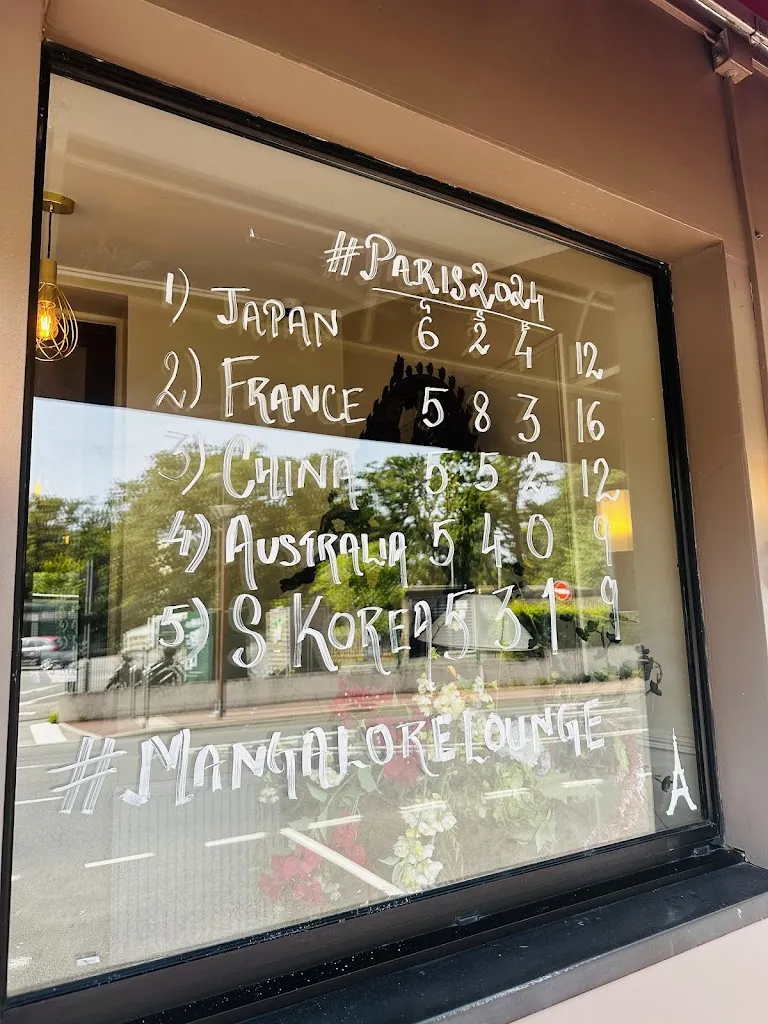 #PARIS2024
G S B
1) JAPAN 6 2 4 12
2) FRANCE 5 8 3 16
3) CHINA 5 5 2 12
4) AUSTRALIA 5 4 0 9
5) S. KOREA 5 3 1 9
#MANGALORELOUNGE